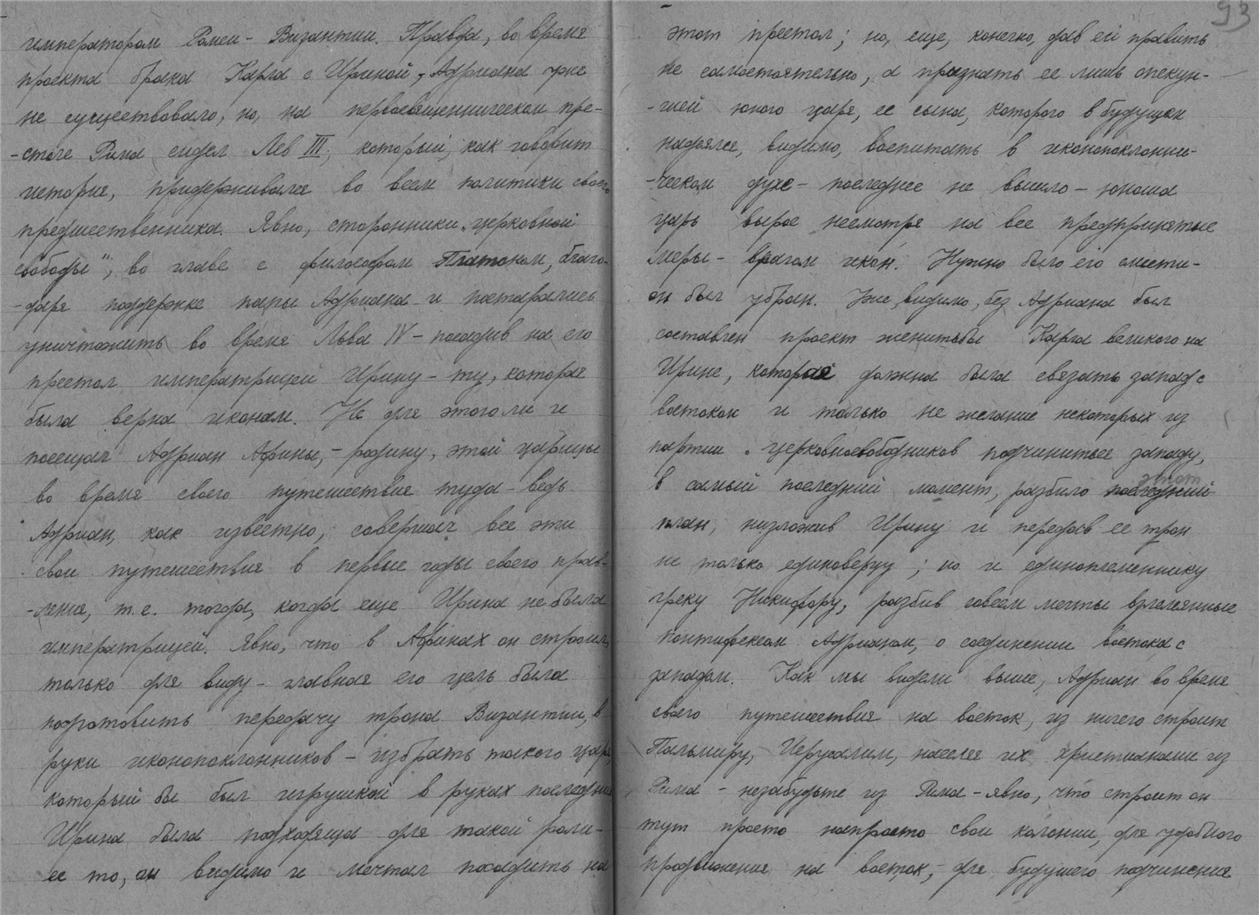 императором Ромеи - Византии. Правда, во время
проекта брака Карла с Ириной, Адриана уже
не существовало, но, на первосвященническом пре-
-столе Рима сидел Лев III, который, как говорит
история, придерживался во всем политики своего
предшественника. Явно, сторонники „церковной
свободы", во главе с философом Платоном, благо-
-даря поддержке папы Адриана и постарались
уничтожить во время Льва IV - посадив на его
престол императрицей Ирину - ту, которая
была верна иконам. Не для этого ли и
посещал Адриан Афины, - родину, этой царицы
во время своего путешествия туда - ведь
Адриан, как известно, совершал все эти
свои путешествия в первые годы своего прав-
-ления, т.е. тогда, когда еще Ирина не была
императрицей. Явно, что в Афинах он строил,
только для виду - главная его цель была
подготовить передачу трона Византии, в
руки иконопоклонников - избрать такого царя,
который бы был игрушкой в руках последних
Ирина была подходяща для такой роли -
ее то, он видимо и мечтал посадить на
93
этот престол; но, еще, конечно, дав ей править
не самостоятельно, а признать ее лишь опекун-
-шей юного царя, ее сына, которого в будущем
надеялся, видимо, воспитать в иконопоклонни-
-ческом духе - последнее не вышло - юноша
царь вырос несмотря на все предпринятые
меры - врагом икон. Нужно было его смести -
он был убран. Уже, видимо, без Адриана был
составлен проект женитьбы Карла великого на
Ирине, которая должна была связать запад с
востоком и только не желание некоторых из
партии „церковносвободников подчиниться западу,
в самый последний момент, разбило последний
этот
план, низложив Ирину и передав ее трон
не только единоверцу; но и единоплеменнику
греку Никифору, разбив совсем мечты
понтифексом Адрианом, о соединении востока с
западом. Как мы видели выше, Адриан во время
своего путешествия на восток, из ничего строит
Пальмиру, Иерусалим, населяя их христианами из
Рима - незабудьте из Рима - явно, что строит он
тут просто напросто свои колонии, для удобного
продвижения на восток, - для будущего подчинения